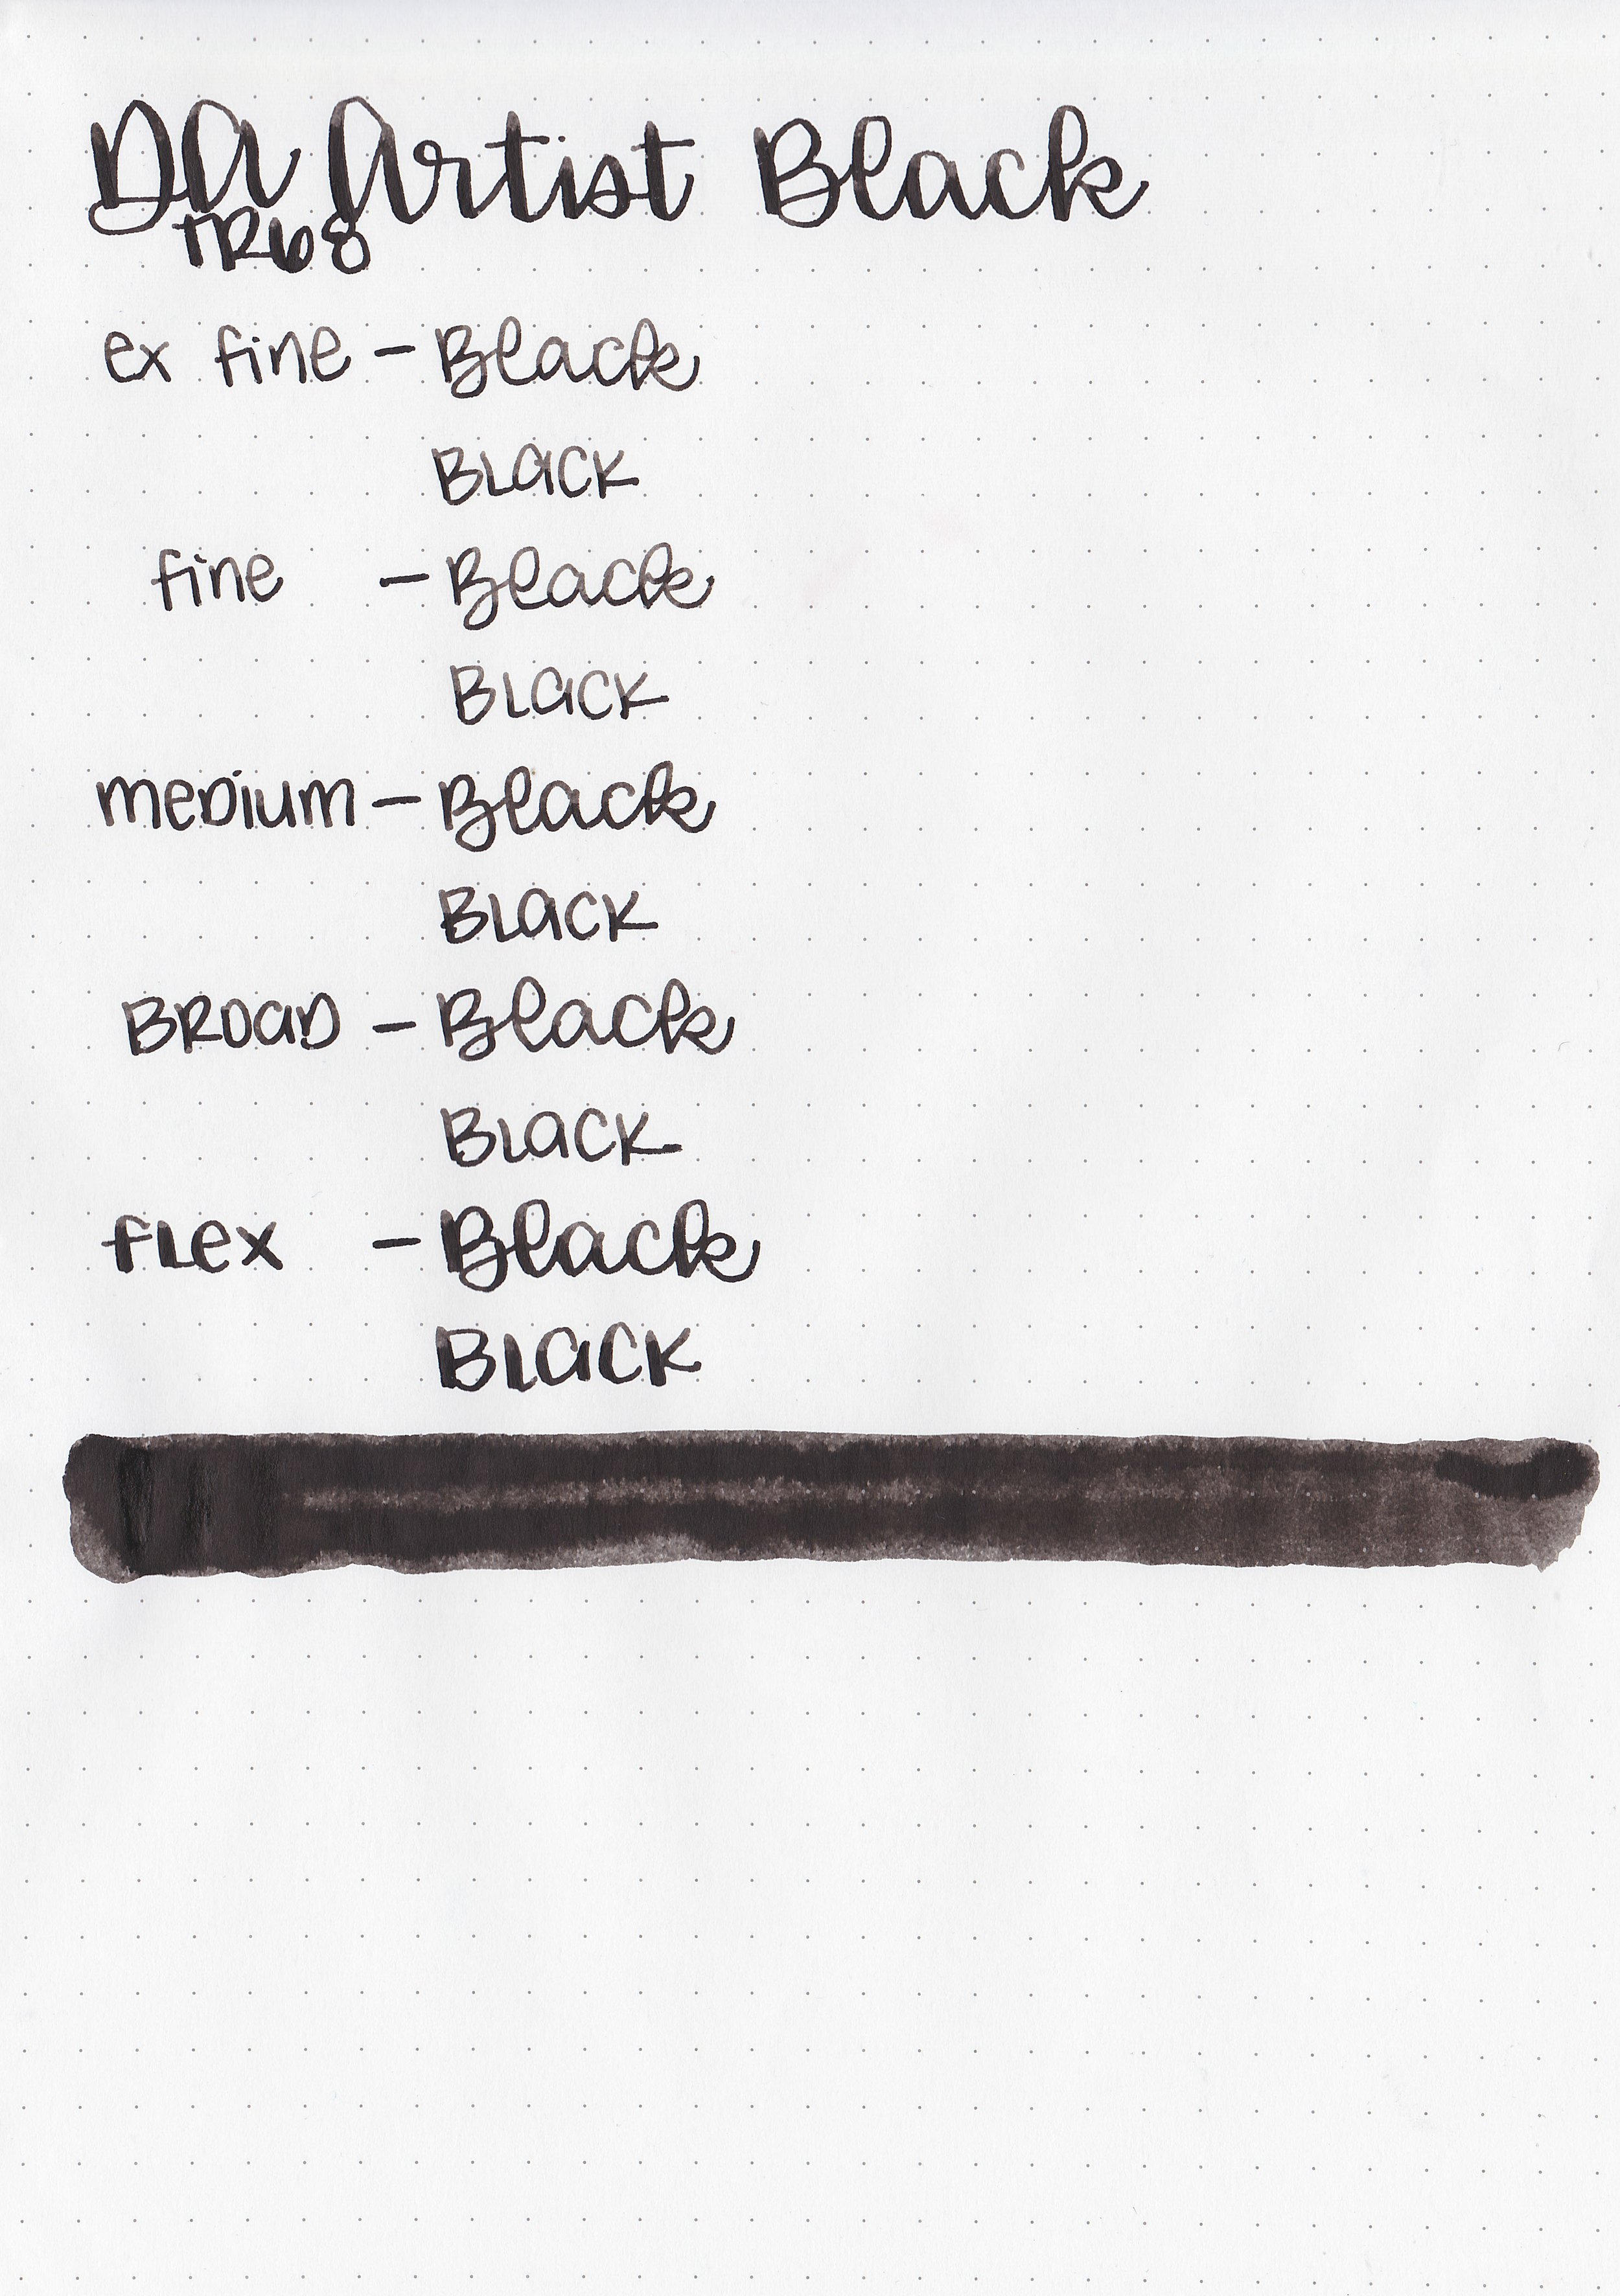 DA Artist Black
TR68
ex fine - Black
BLACK
fine - Black
BLACK
medium - Black
BLACK
BROAD - Black
BLACK
flex - Black
BLACK